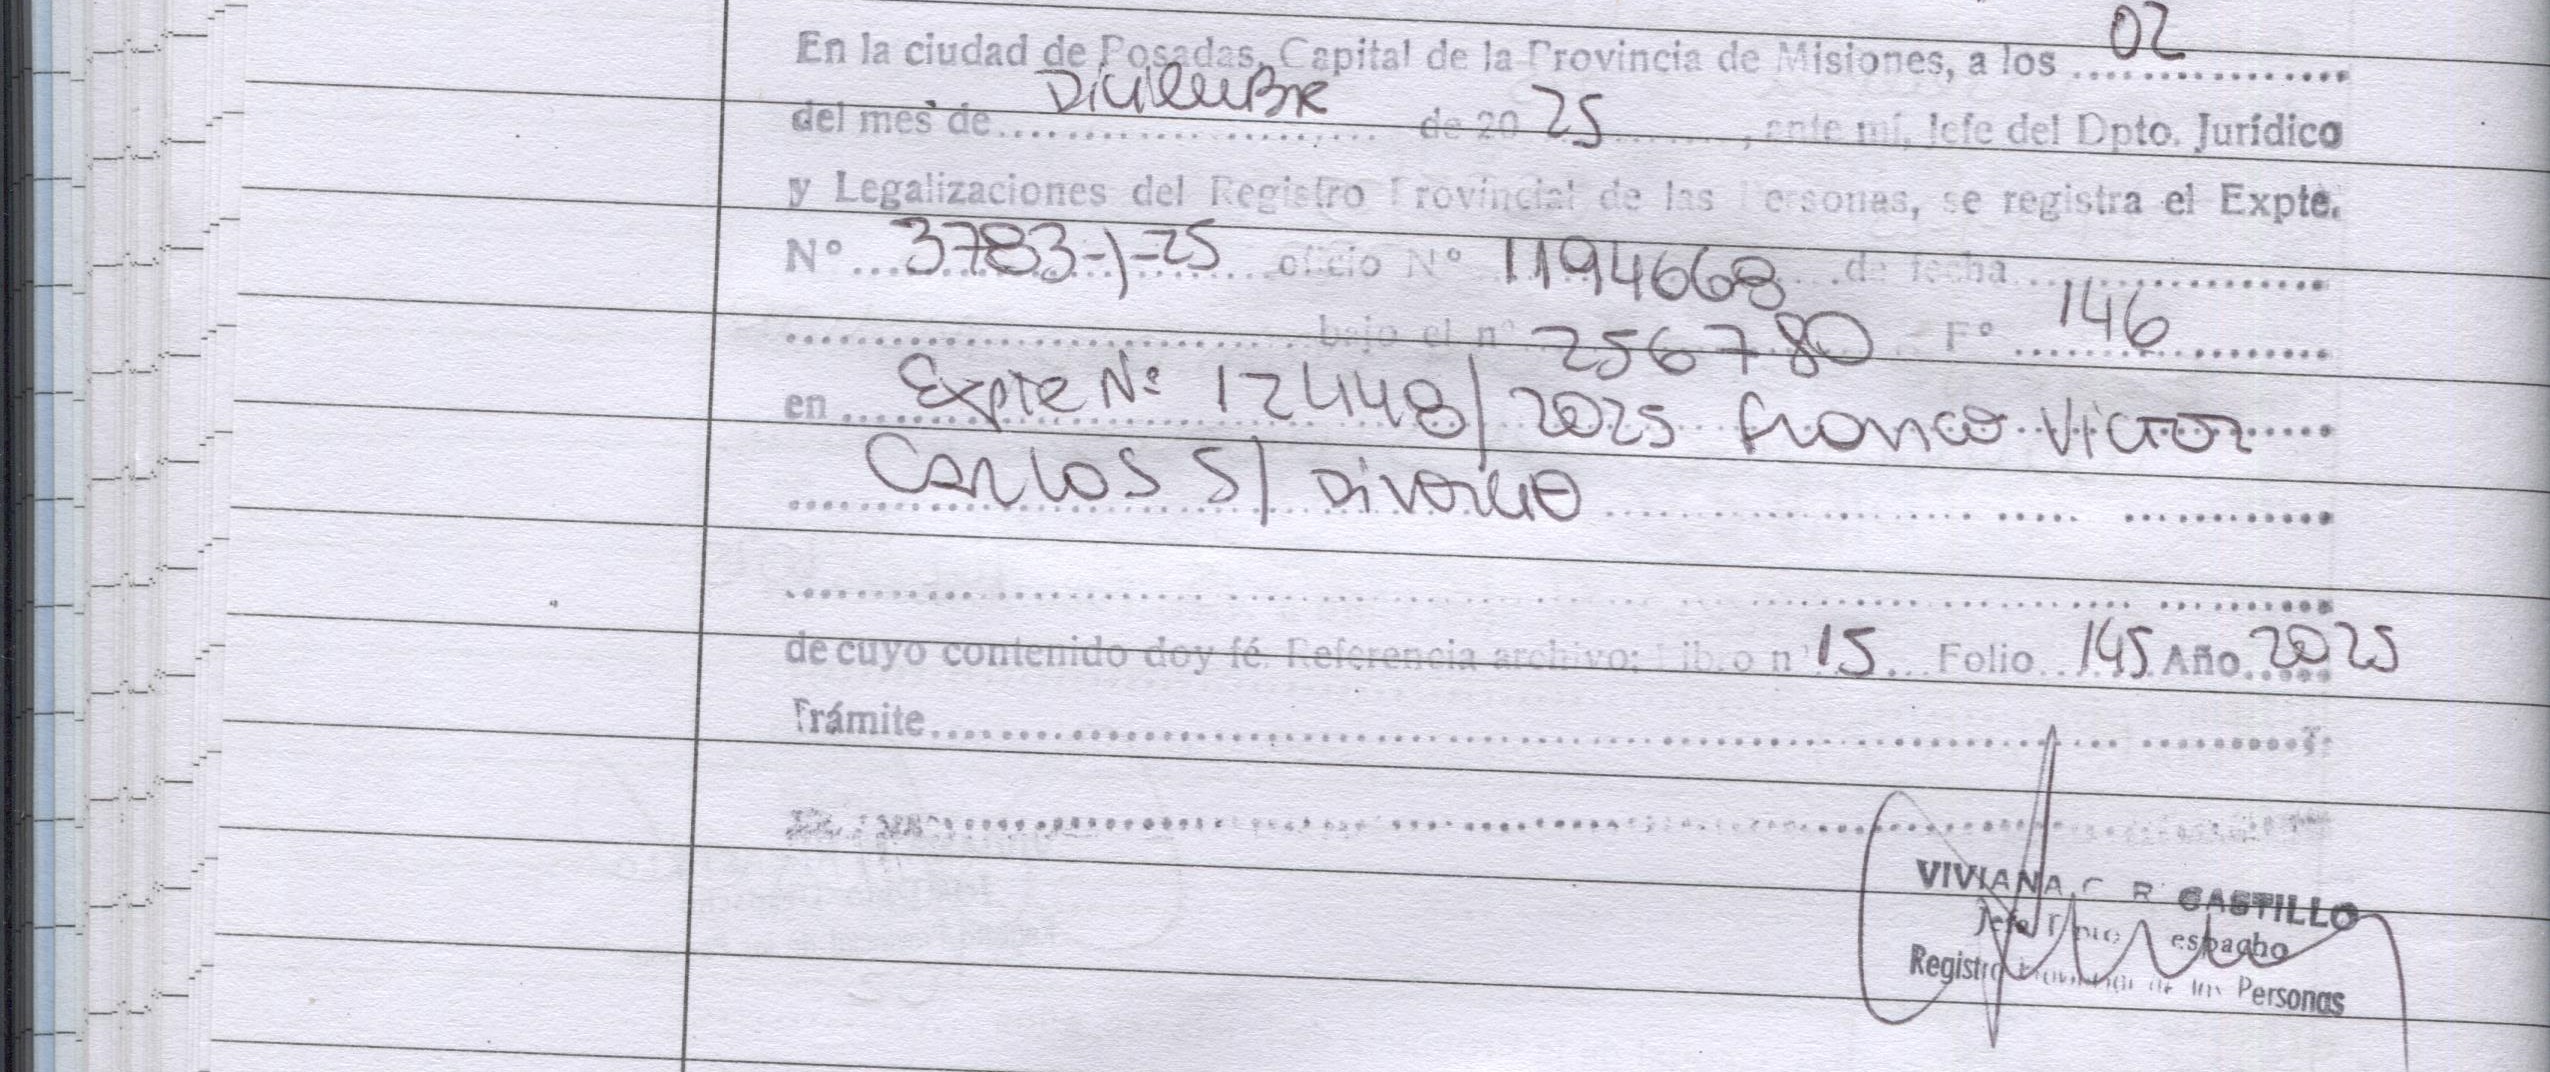 En la ciudad de Posadas, Capital de la Provincia de Misiones, a los 02
del mes de Diciembre de 20 25, ante mí, Jefe del Dpto. Jurídico
y Legalizaciones del Registro Provincial de las Personas, se registra el Expte.
Nº 3783-J-25 oficio Nº 11194668 de fecha
bajo el nº 256780 - Fº 146
en Expte Nº 12448/2025 Franco Victor
Carlos S/ Divorcio
de cuyo contenido doy fé. Referencia archivo: Libro nº 15 Folio 145 Año 2025
Trámite
VIVIANA C R CASTILLO
Jefe Dpto Despacho
Registro Provincial de las Personas